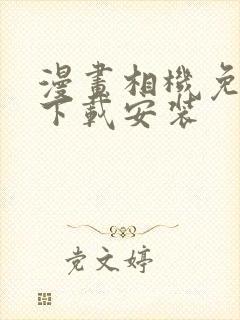 漫畫相機免
下載安裝
党文婷